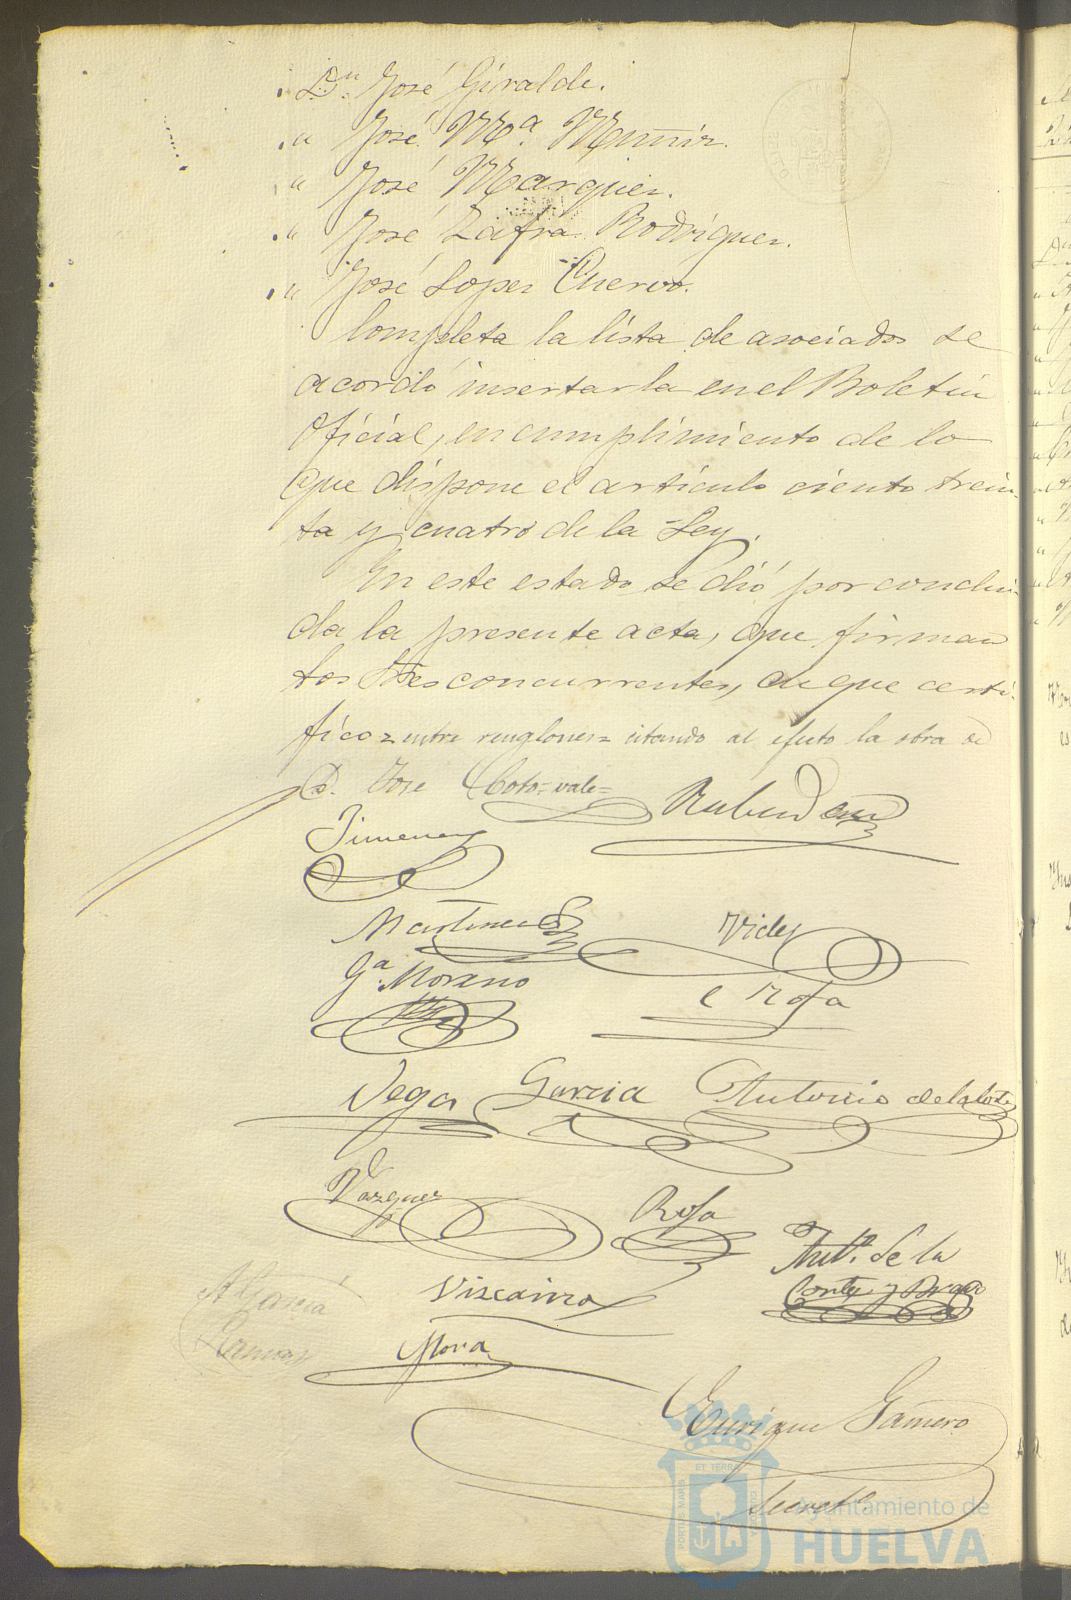 Dn José Giralde.
" José Mª. Mannir.
" José Marquez.
" José Zafra Rodriguez.
" José Lopez Cuervo.
Completa la lista de asociados se
acordó insertarla en el Boletin
Oficial, en cumplimiento de lo
que dispone el articulo ciento trein-
ta y cuatro de la Ley.
En este estado se dió por conclui-
da la presente acta, que firman
los Sres concurrentes, de que certi-
fico = entre renglones = citando al efecto la otra de
D. José Coto = vale =
Jimenez
Martinez
Vides
Gª. Moreno
Rofa
Vega
Garcia
Antonio de la Corte
Vazquez
Rofa
Antº. de la
Corte y Bravo
A. Garcia
Ramos
Viscaino
Mora
Enrique Gamero
Secretº.
PORTUS MARIS
ET TERRÆ
CUSTODIA
Ayuntamiento de
HUELVA